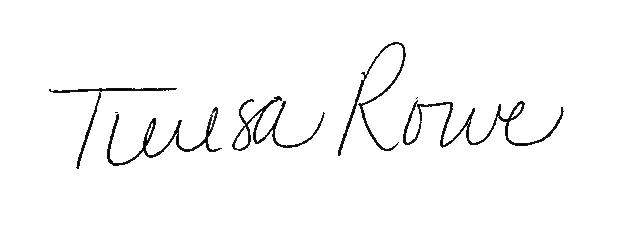 Teresa Rowe